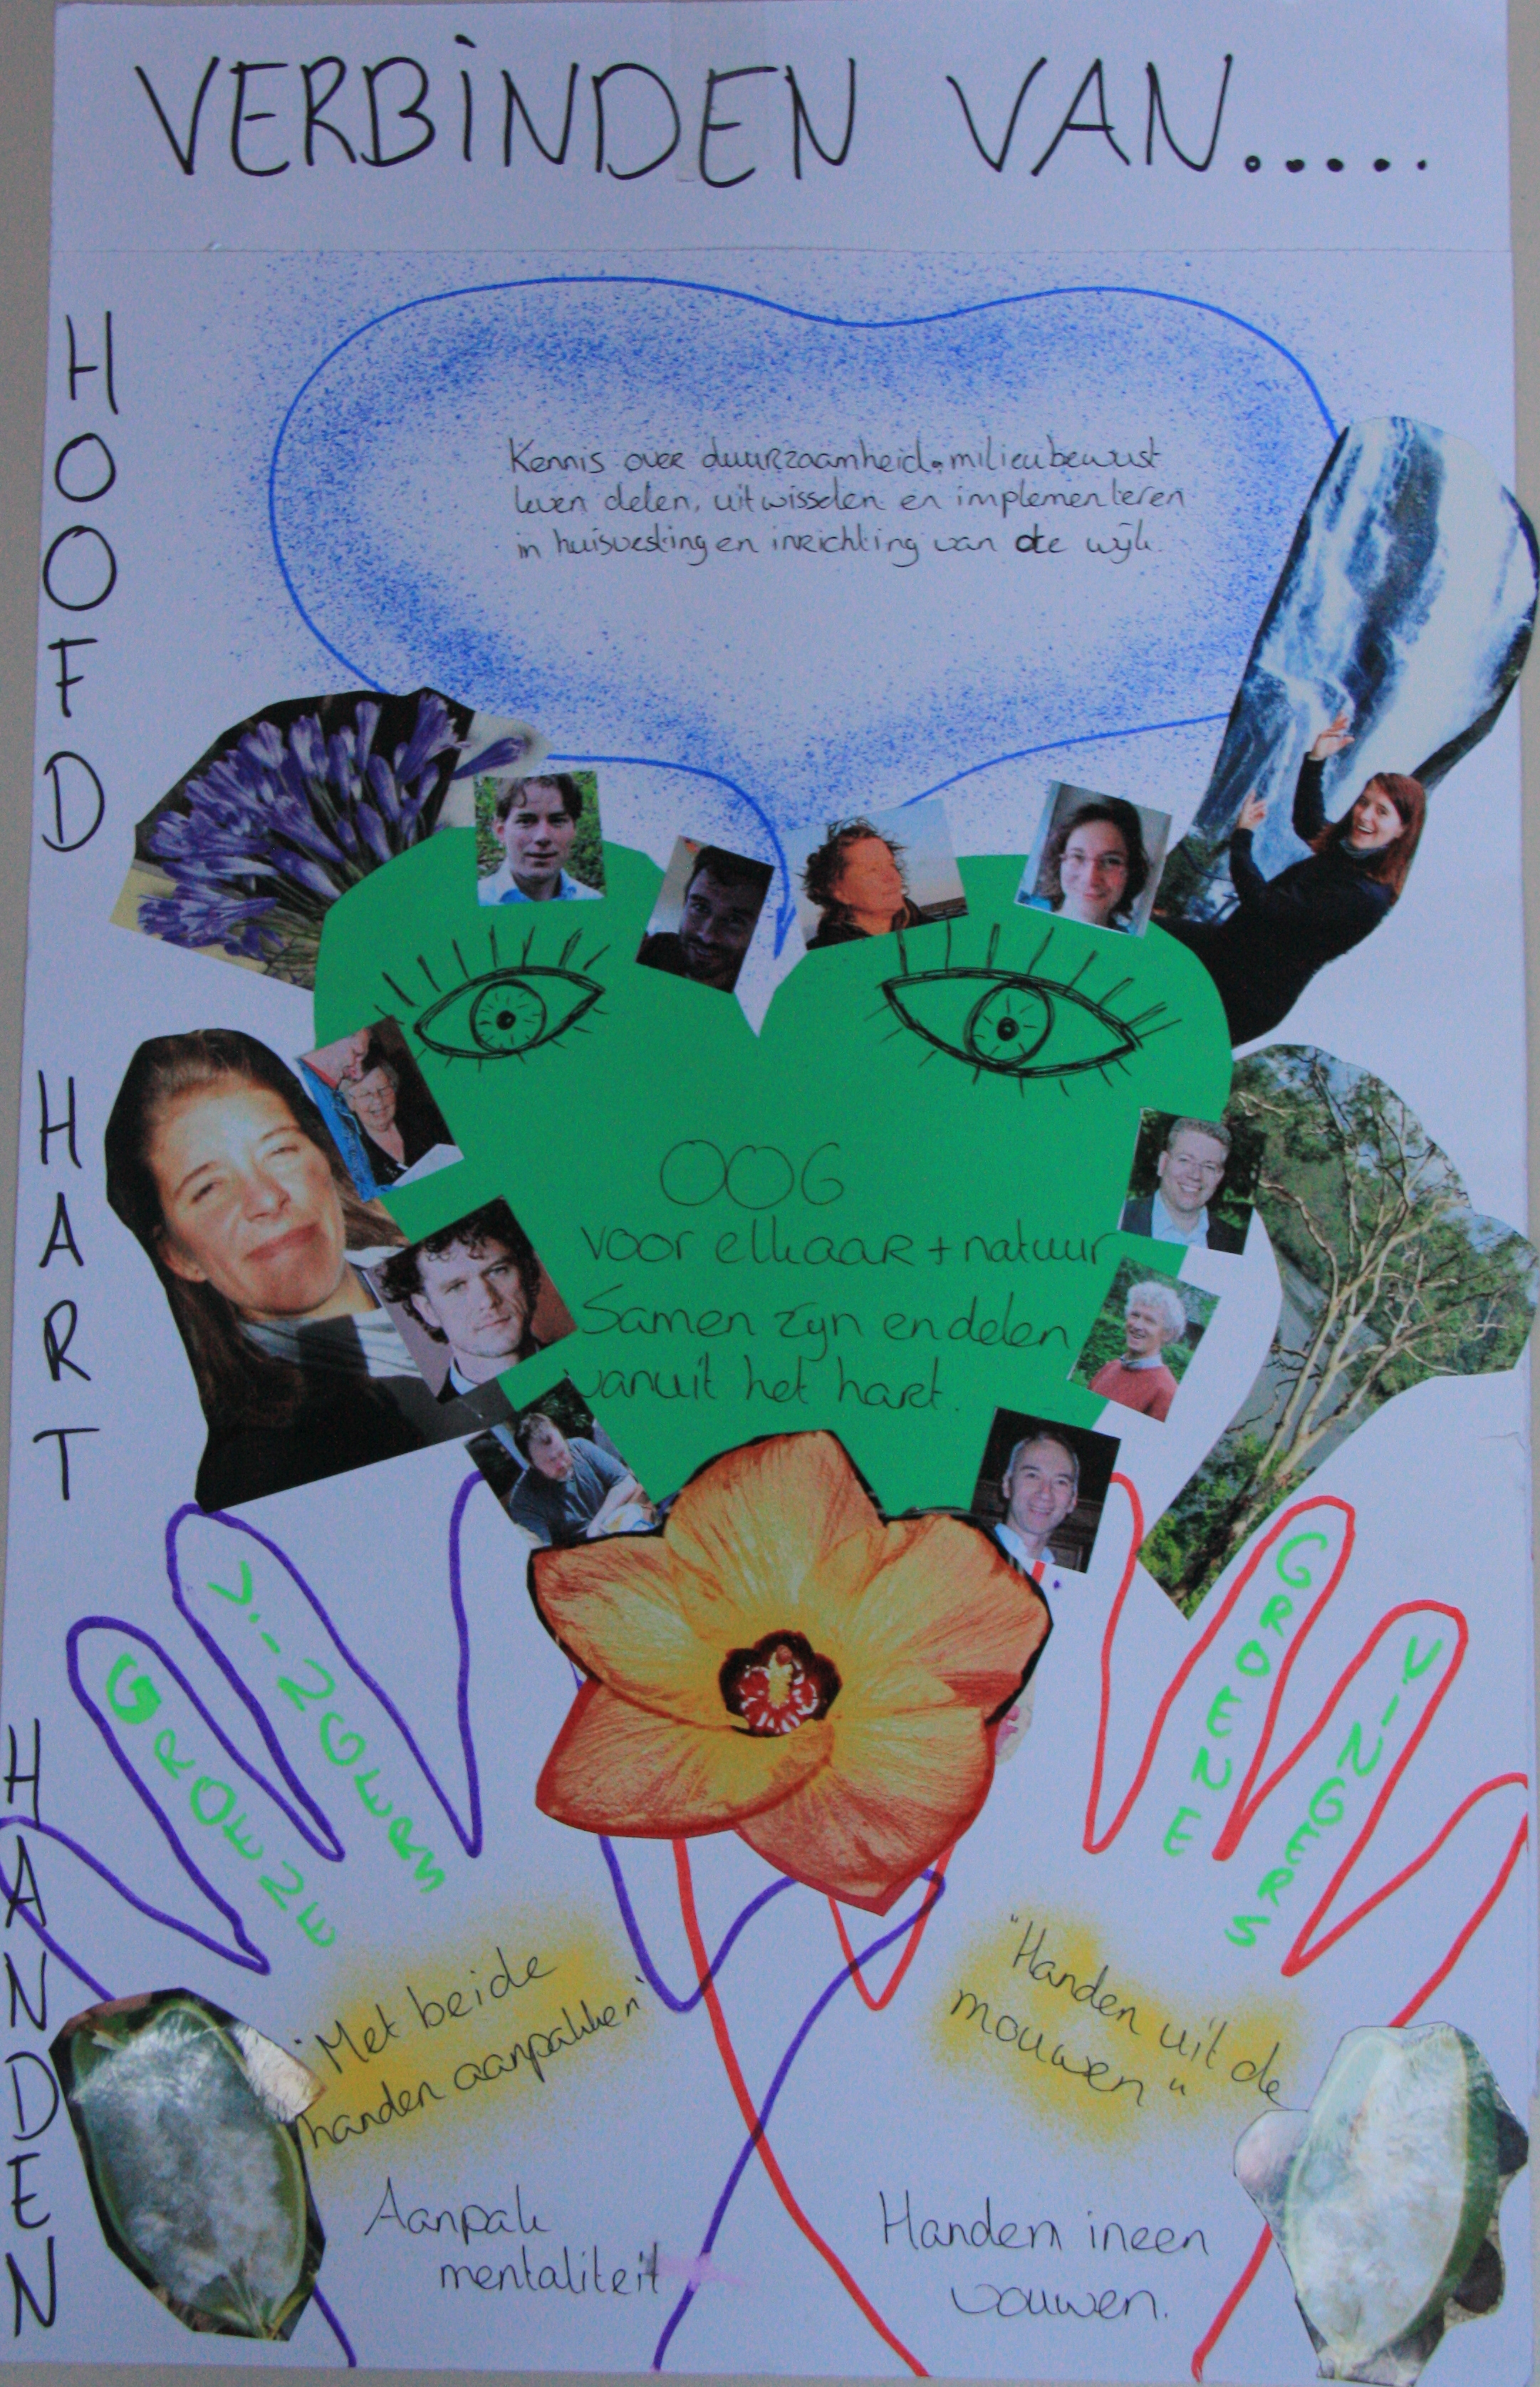 VERBINDEN VAN.....
HOOFD
Kennis over duurzaamheid. milieubewust
leven delen, uitwisselen en implementeren
in huisvesting en inrichting van de wijk.
HART
OOG
voor elkaar + natuur
Samen zijn en delen
vanuit het hart.
HANDEN
GROENE
VINGERS
GROENE
VINGERS
"Met beide
handen aanpakken"
"Handen uit de
mouwen"
Aanpak
mentaliteit
Handen ineen
vouwen.